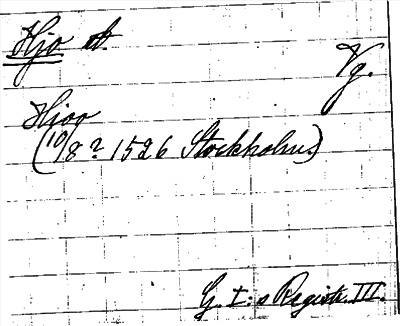 Hjo st.
Vg.
Hjoo
(10/8? 1526 Stockholm.)
G. I:s Registr. III.